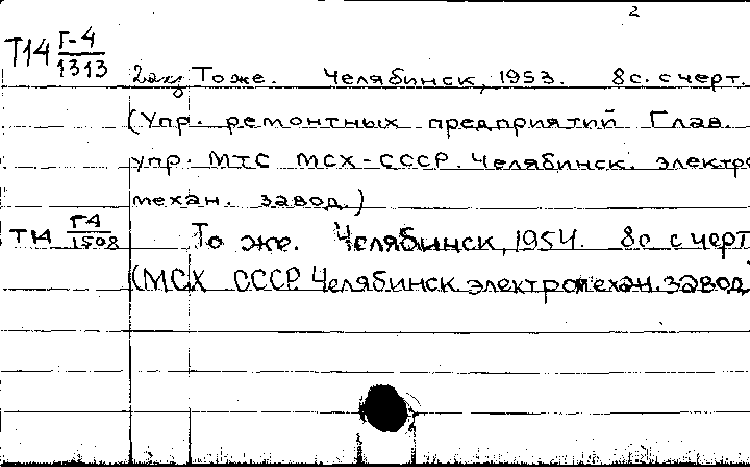 2
Т14 Г-4/1313 2экз То же. Челябинск, 1953. 8с. с черт.
(Упр. ремонтных предприятий Глав.
упр. МТС МСХ-СССР. Челябинск. электро
механ. завод.)
Т14 Г4/1508 То же. Челябинск, 1954. 8с с черт
(МСХ СССР. Челябинск электромехан. завод